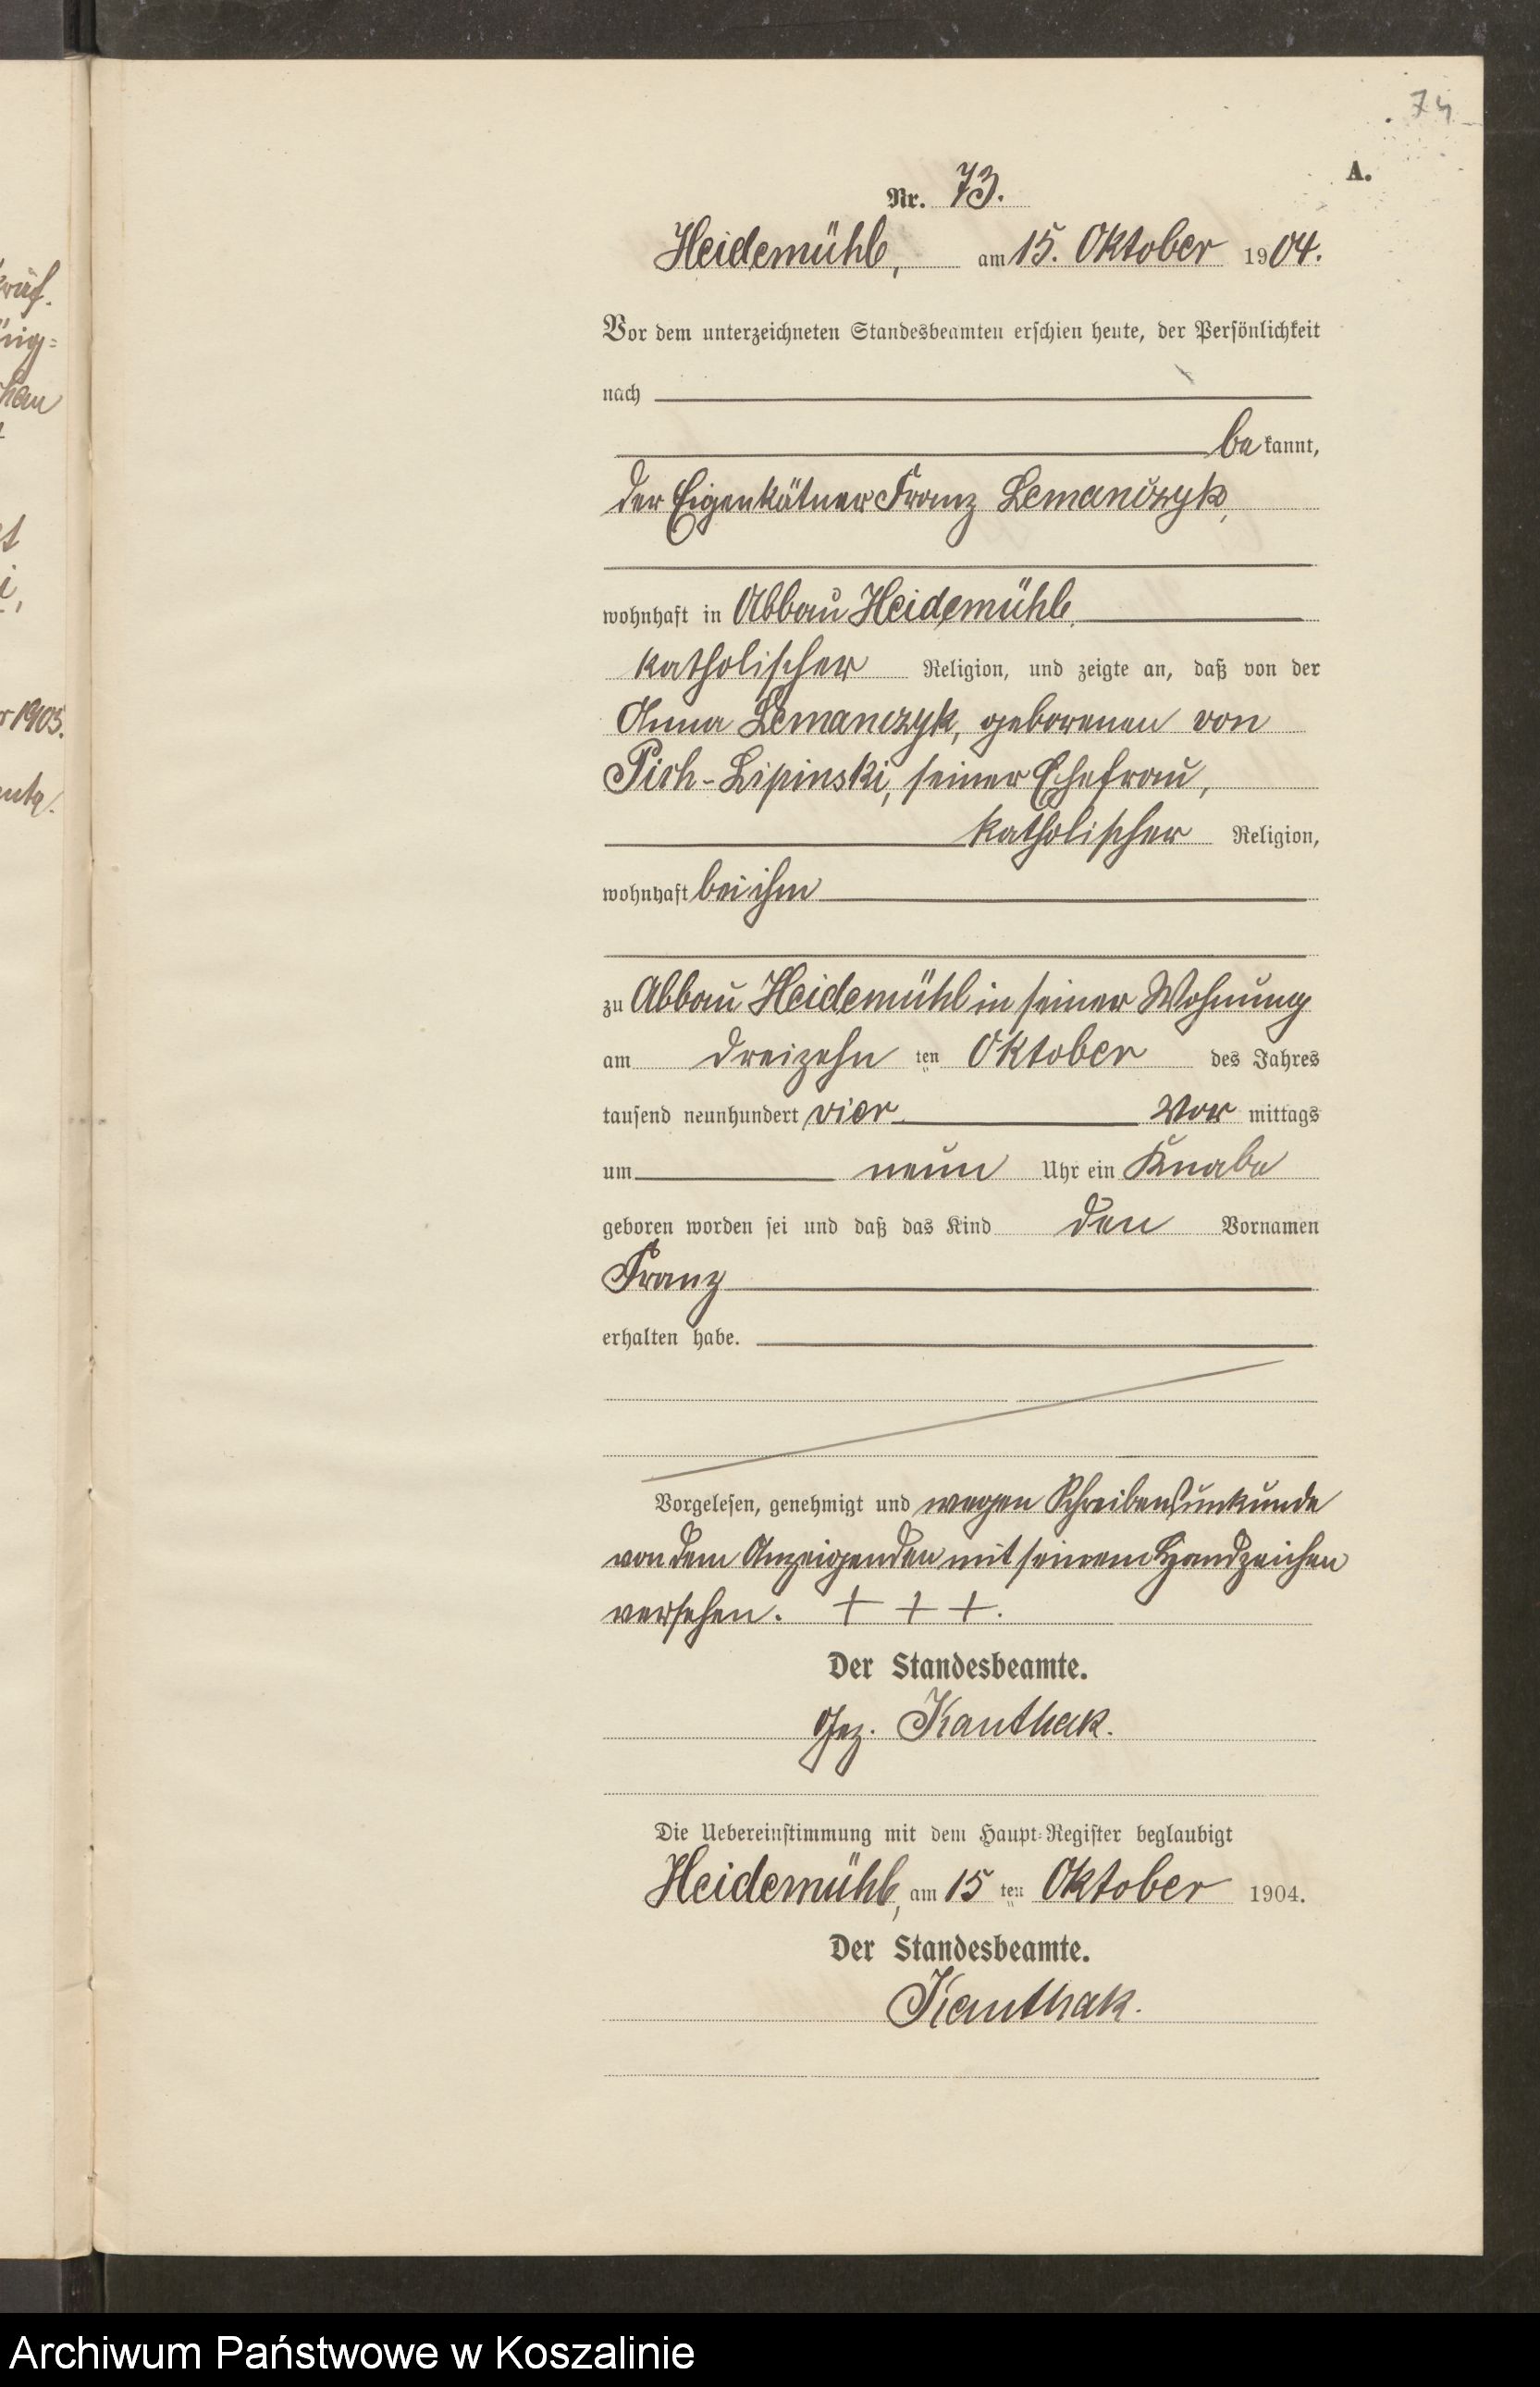 74
A.
Nr. 73.
Heidemühl, am 15. Oktober 1904.
Vor dem unterzeichneten Standesbeamten erschien heute, der Persönlichkeit
nach
be kannt,
der Eigenkätner Franz Lemanczyk,
wohnhaft in Abbau Heidemühl,
katholischer Religion, und zeigte an, daß von der
Anna Lemanczyk, geborenen von
Pich-Lipinski, seiner Ehefrau,
katholischer Religion,
wohnhaft bei ihm
zu Abbau Heidemühl in seiner Wohnung
am dreizehn ten Oktober des Jahres
tausend neunhundert vier Vor mittags
um neun Uhr ein Knabe
geboren worden sei und daß das Kind den Vornamen
Franz
erhalten habe.
Vorgelesen, genehmigt und wegen Schreibensunkunde
von dem Anzeigenden mit seinem Handzeichen
versehen. + + +.
Der Standesbeamte.
Gez. Kauthak.
Die Uebereinstimmung mit dem Haupt-Register beglaubigt
Heidemühl, am 15 ten Oktober 1904.
Der Standesbeamte.
Kauthak.
r 1903.
Archiwum Państwowe w Koszalinie